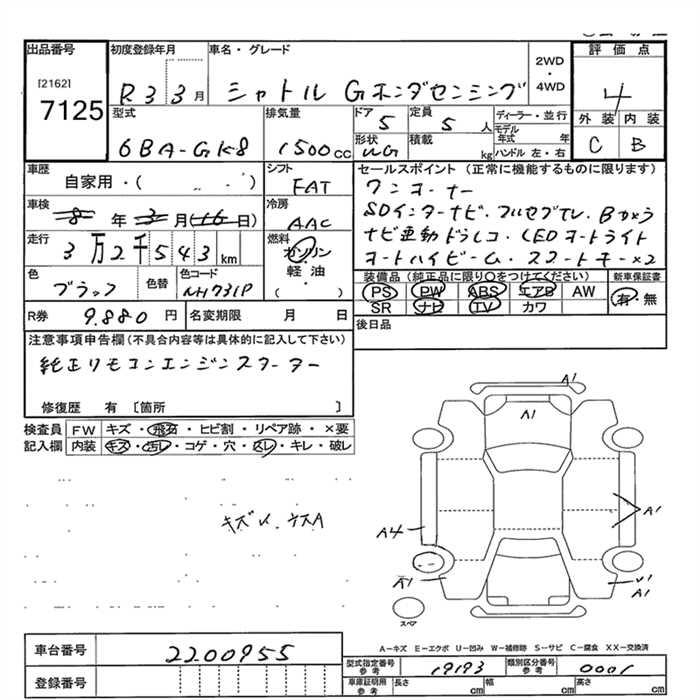 出品番号 初度登録年月 車名・グレード 評価点
[2162]
7125 R3 3月 シャトル Gホンダセンシング 2WD・4WD 4
型式 排気量 ドア 定員 ディーラー・並行 外装 内装
6BA-GK8 1500cc 5 5人 モデル年式 年 C B
形状 積載 ハンドル 左・右
WG kg
車歴 シフト セールスポイント(正常に機能するものに限ります)
自家用・( ) FAT ワンオーナー
車検 冷房 SDインターナビ・フルセグTV・Bカメラ
8年3月(16日) AAC ナビ連動ドラレコ・LEDオートライト
走行 燃料 オートハイビーム・スマートキー×2
3万2千543km ガソリン
軽油
( )
色 色替 色コード 装備品(純正品に限り○をつけてください) 新車保証書
ブラック NH731P PS PW ABS エアB AW 有・無
SR ナビ TV カワ
R券 9.880円 名変期限 月 日 後日品
注意事項申告欄(不具合内容等は具体的に記入して下さい)
純正リモコンエンジンスターター
修復歴 有 〔箇所 〕
検査員 FW キズ・飛石・ヒビ割・リペア跡・×要
記入欄 内装 キズ・汚レ・コゲ・穴・スレ・キレ・破レ
A1
A1
A1
A4
A1
A1
スペア
A-キズ E-エクボ U-凹み W-補修跡 S-サビ C-腐食 XX-交換済
車台番号 2200955
型式指定番号 参考 19193 類別区分番号 参考 0001
登録番号 車庫証明用 参考 長さ cm 幅 cm 高さ cm